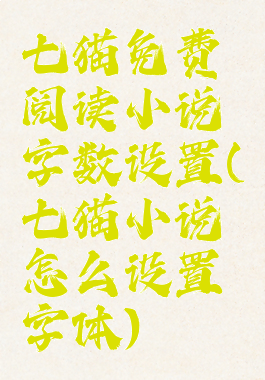 七猫免费
阅读小说
字数设置(
七猫小说
怎么设置
字体)